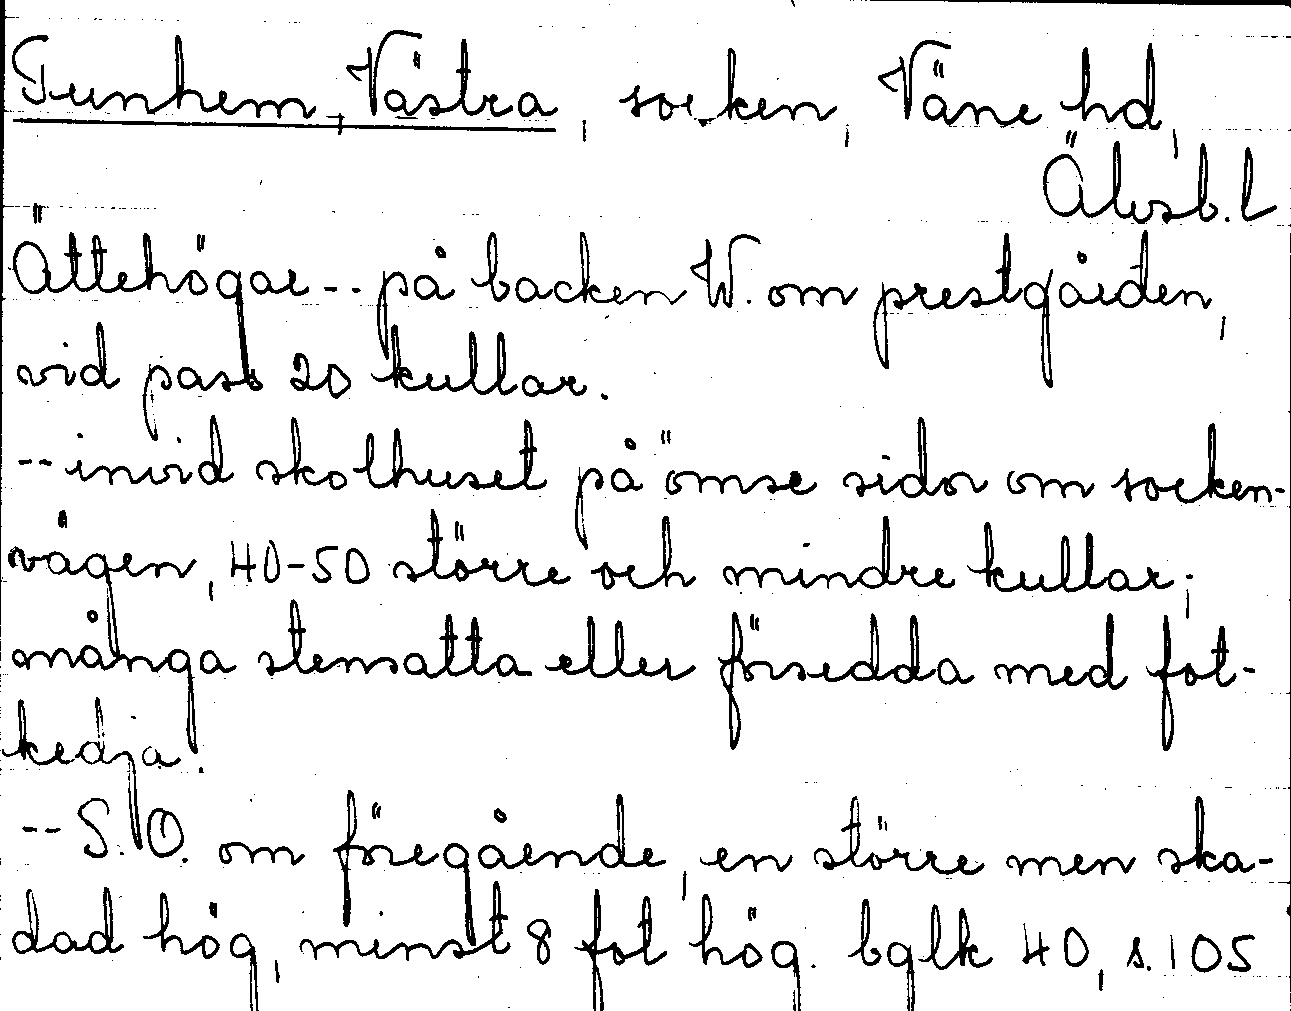 Tunhem, Västra, socken, Väne hd,
Älvsb. L
Ättehögar -- på backen W. om prestgården,
vid pass 20 kullar.
-- invid skolhuset på ömse sidor om socken-
vägen, 40-50 större och mindre kullar;
många stensatta eller försedda med fot-
kedja.
-- S.O. om föregående, en större men ska-
dad hög, minst 8 fot hög. bglk 40, s. 105